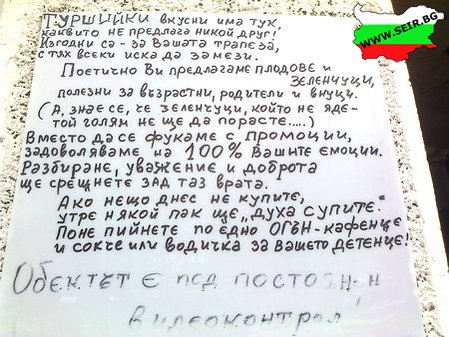 www.SEIR.BG
Туршийки вкусни има тук,
каквито не предлага никой друг!
Изгодни са - за Вашата трапеза,
с тях всеки иска да замези.
Поетично Ви предлагаме плодове и
зеленчуци,
полезни за възрастни, родители и внуци.
(А, знае се, че зеленчуци, който не яде-
той голям не ще да порасте.....)
Вместо да се фукаме с промоции,
задоволяваме на 100% Вашите емоции.
Разбиране, уважение и доброта
ще срещнете зад таз врата.
Ако нещо днес не купите,
утре някой пак ще „духа супите".
Поне пийнете по едно огън-кафенце
и сокче или водичка за Вашето детенце!
Обектът е под постоянен
видеоконтрол!